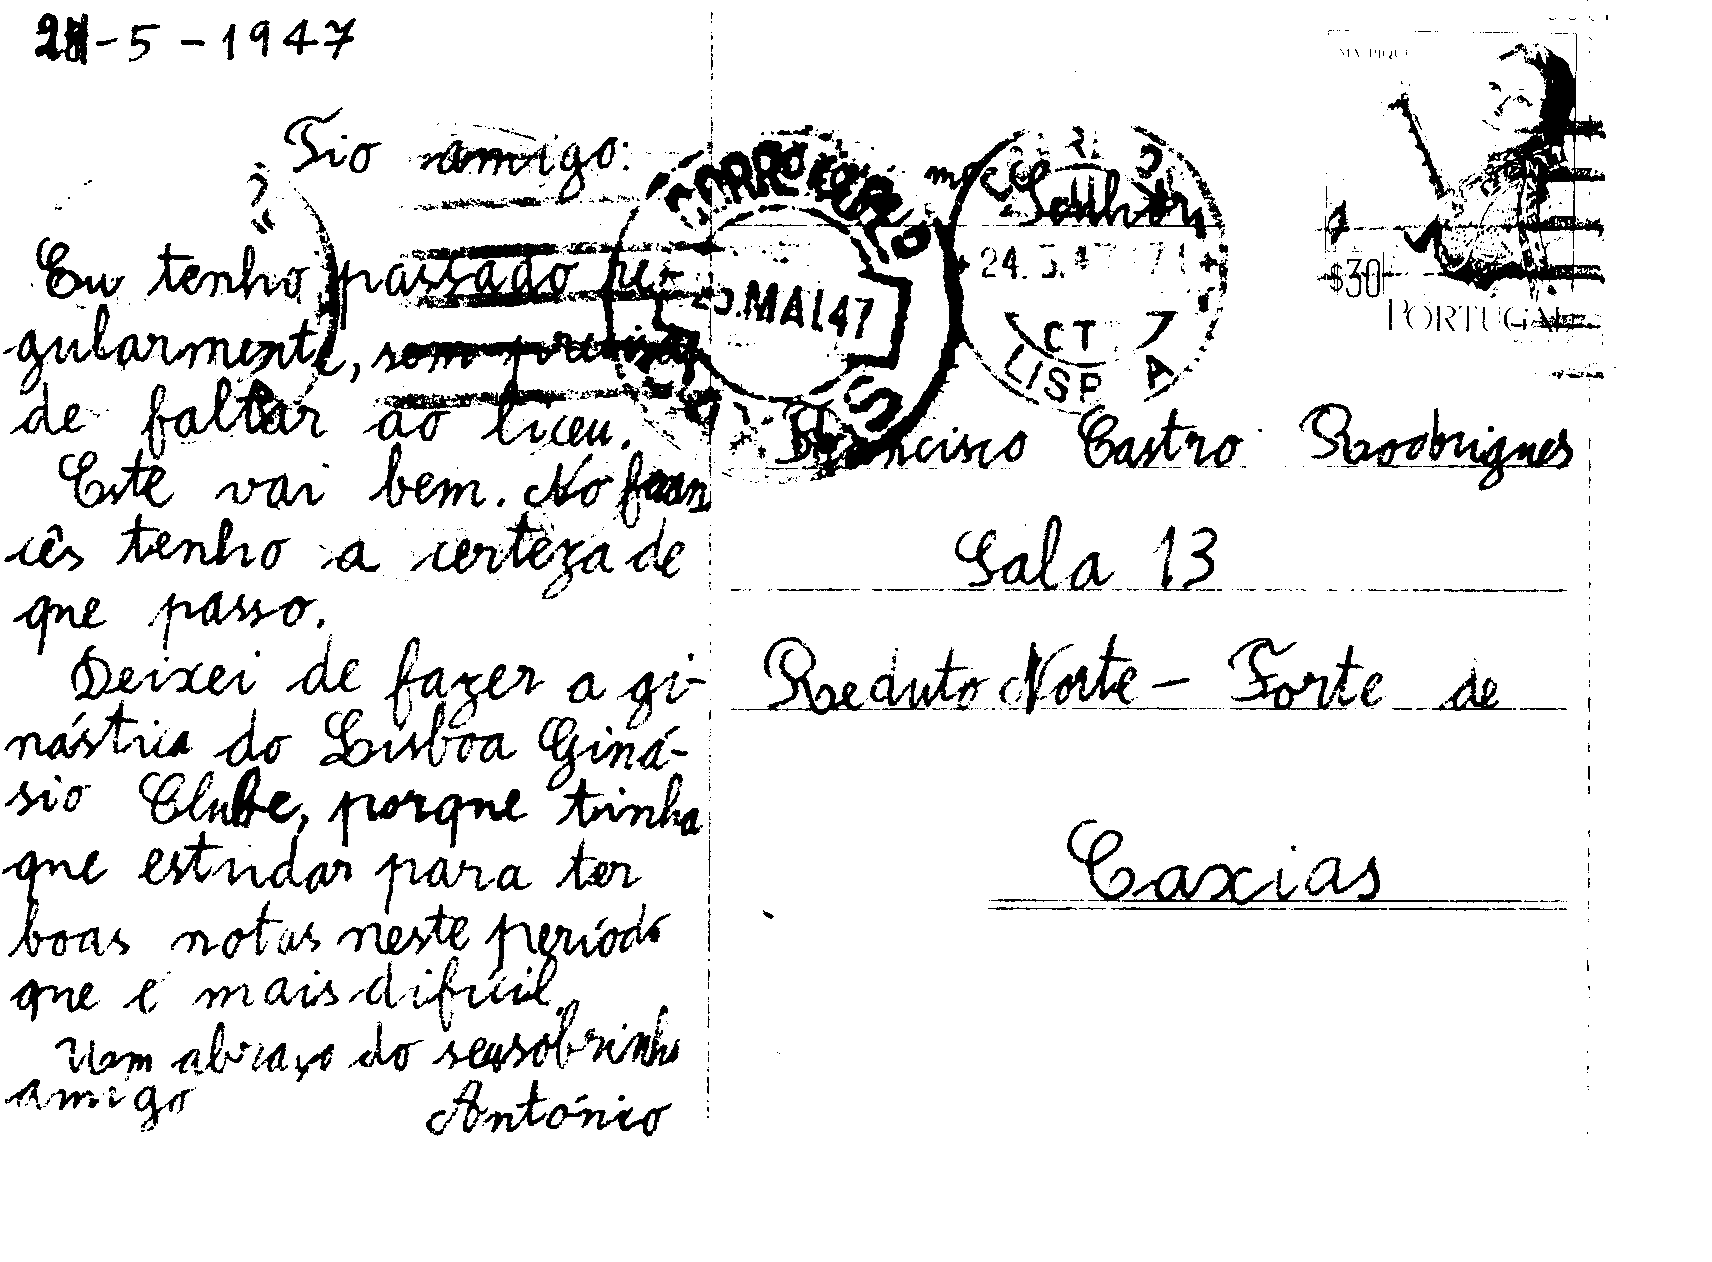 -5-1947
Tio amigo:
Eu tenho passado re-
gularmente, sem precisar
de faltar ao liceu.
Este vai bem. No fran
cês tenho a certeza de
que passo.
Deixei de fazer a gi-
nástica do Lisboa Giná-
sio Clube, porque tinha
que estudar para ter
boas notas neste período
que é mais difícil.
Um abraço do seu sobrinho
amigo António
CORREIOS
MAI.47
24.5.47
CT 7
LISBOA
$30
PORTUGAL
Senhor
Francisco Castro Rodrigues
Sala 13
Reduto Norte - Forte de
Caxias